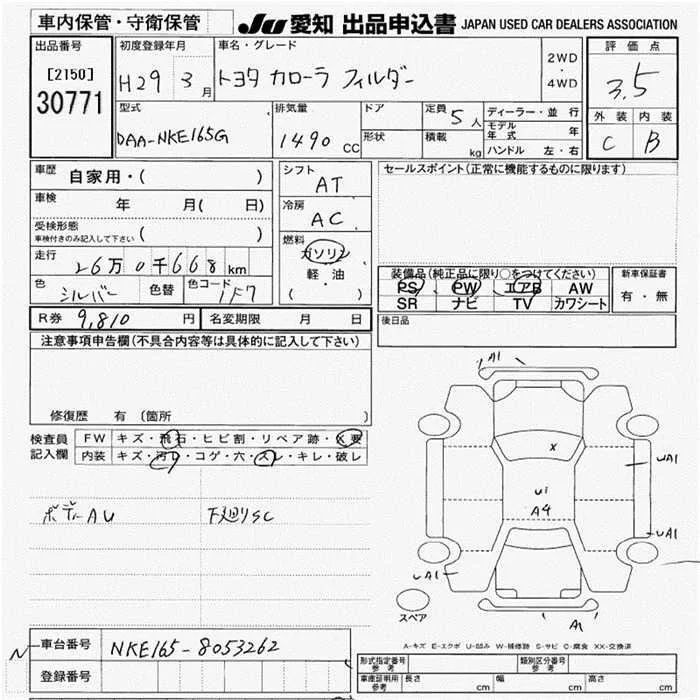 車内保管・守衛保管
JU 愛知 出品申込書 JAPAN USED CAR DEALERS ASSOCIATION
出品番号
[2150]
30771
初度登録年月
H29 3月
車名・グレード
トヨタ カローラ フィルダー
2WD
・
4WD
評価点
3.5
外装 内装
C B
型式
DAA-NKE165G
排気量
1490 CC
ドア
形状
定員 5人
積載 kg
ディーラー・並行
モデル年式 年
ハンドル 左・右
車歴 自家用・( )
車検 年 月( 日)
受検形態
車検付きのみ記入して下さい ( )
走行 26万0千668km
色 シルバー 色替 色コード 1F7
シフト
AT
冷房
AC
燃料
ガソリン
・
軽・油
( )
セールスポイント(正常に機能するものに限ります)
装備品(純正品に限り○をつけてください)
PS PW エアB AW
SR ナビ TV カワシート
新車保証書
有・無
R券 9,810円 名変期限 月 日
後日品
注意事項申告欄(不具合内容等は具体的に記入して下さい)
修復歴 有(箇所 )
検査員
記入欄
FW キズ・飛石・ヒビ割・リペア跡・X要
内装 キズ・汚レ・コゲ・穴・スレ・キレ・破レ
ボデーAU 下廻りSC
A1
X
UA1
U1
A4
UA1
UA1
A1
スペア
A-キズ E-エクボ U-凹み W-補修跡 S-サビ C-腐食 XX-交換済
N
車台番号 NKE165-8053262
登録番号
形式指定番号
参考
類別区分番号
参考
車庫証明用
参考
長さ cm 幅 cm 高さ cm